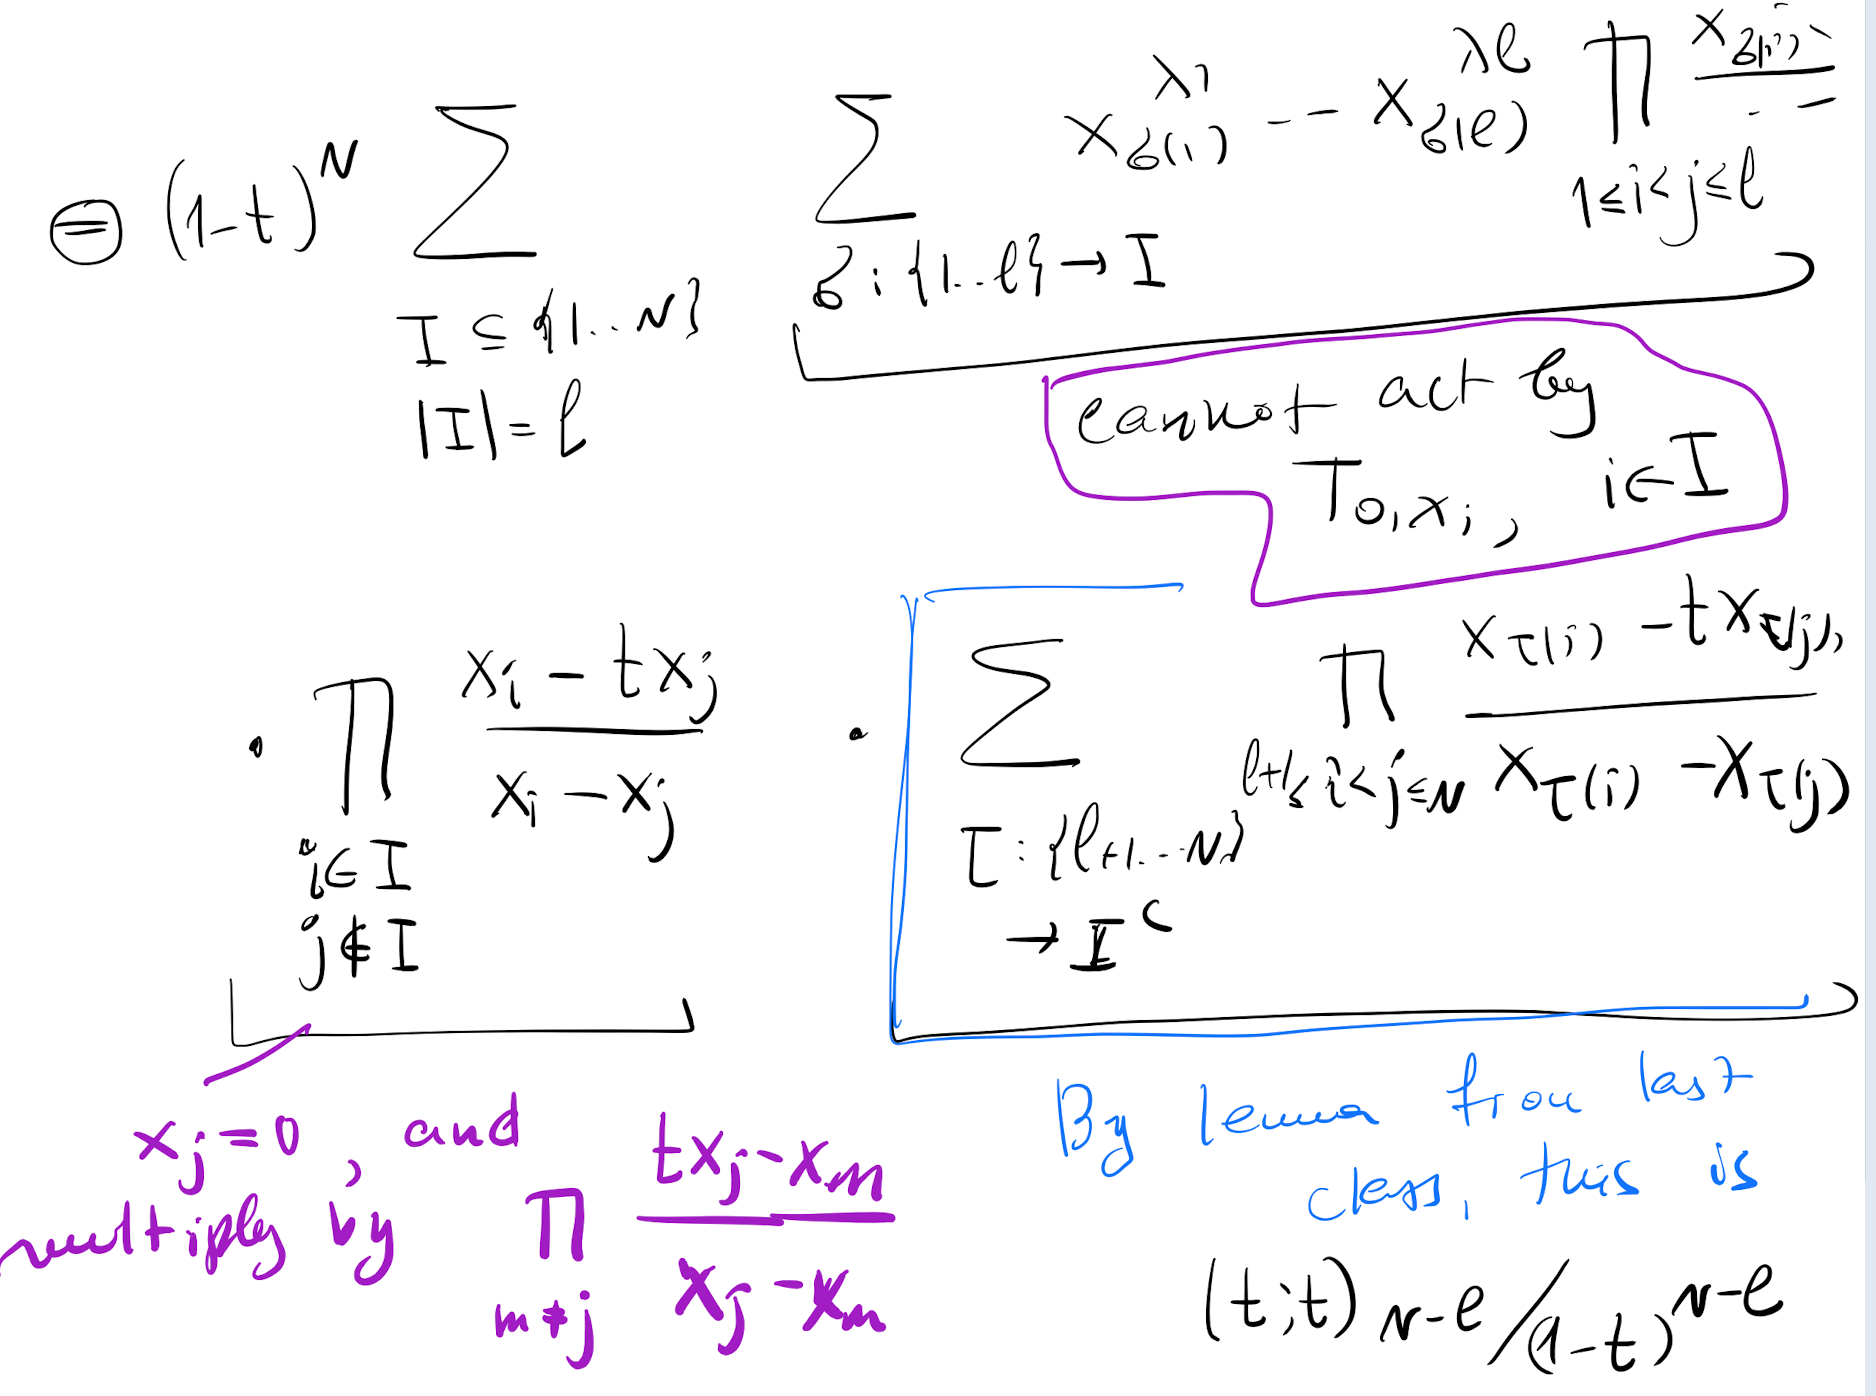 ⊜ (1-t)^N ∑_{I ⊆ {1..N}, |I| = ℓ} ∑_{σ: {1..ℓ} → I} x_{σ(1)}^{λ1} -- x_{σ(ℓ)}^{λℓ} ∏_{1≤i<j≤ℓ} x_{σ(i)} - / . -
cannot act by
T_{0,x_i}, i∈I
· ∏_{i∈I, j∉I} (x_i - t x_j)/(x_i - x_j) · ∑_{τ: {ℓ+1...N} → I^c} ∏_{ℓ+1≤i<j≤N} (x_{τ(i)} - t x_{τ(j)})/(x_{τ(i)} - x_{τ(j)})
x_j = 0, and
multiply by ∏_{m≠j} (t x_j - x_m)/(x_j - x_m)
By lemma from last
class, this is
(t;t)_{N-ℓ}/(1-t)^{N-ℓ}